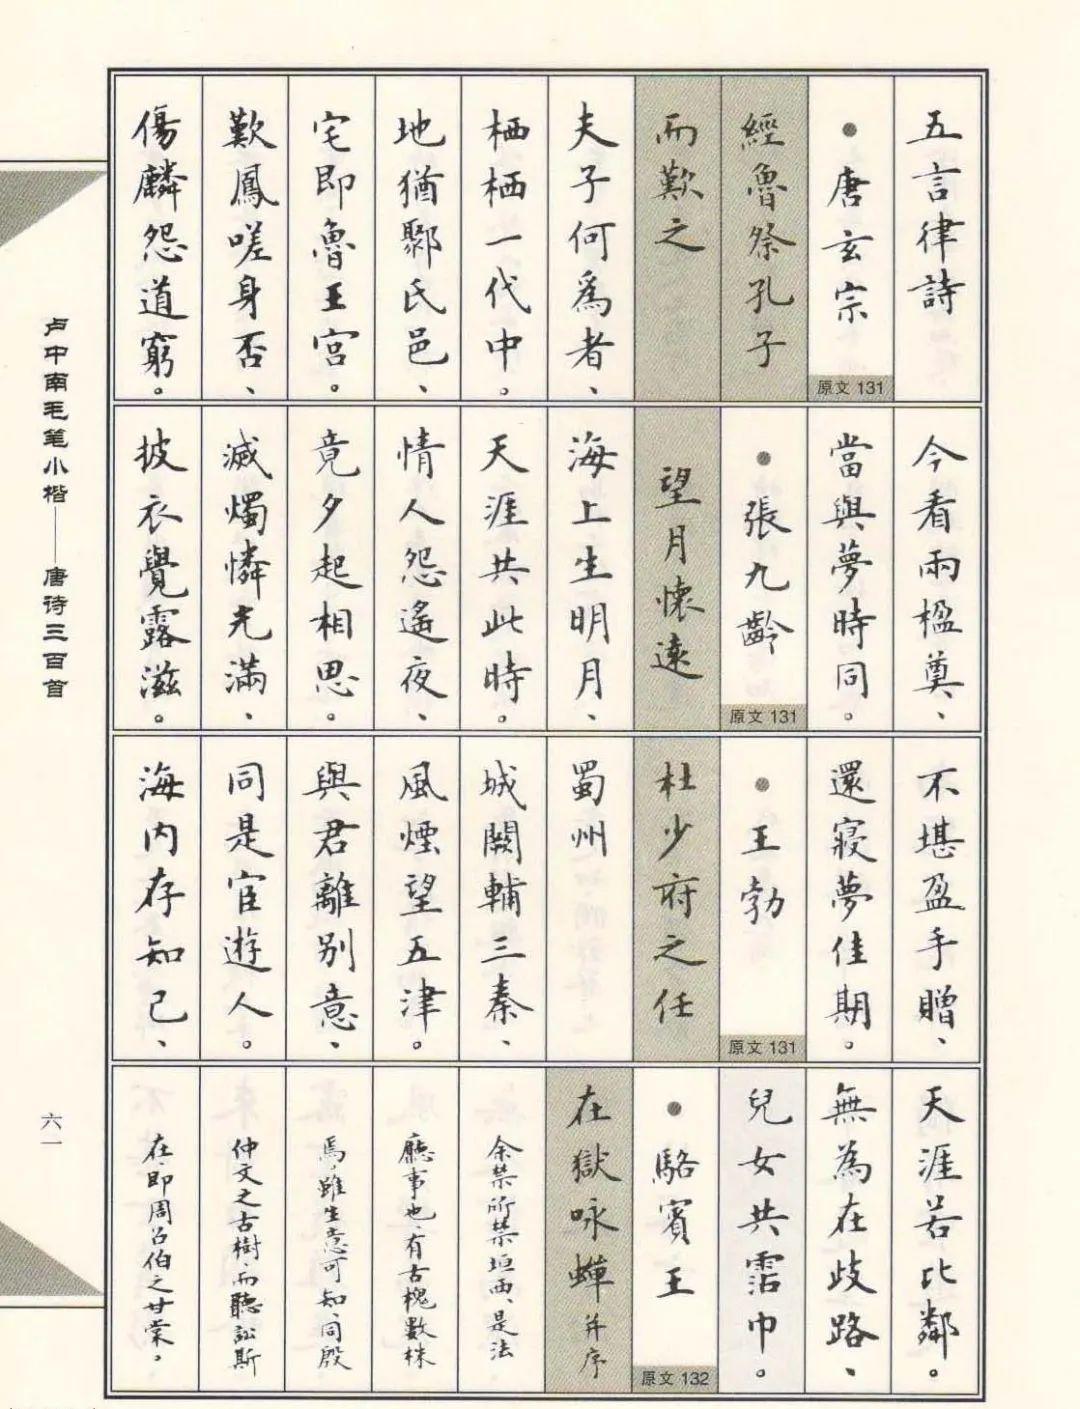 五言律詩
●唐玄宗
原文 131
經魯祭孔子
而歎之
夫子何為者、
栖栖一代中。
地猶鄹氏邑、
宅即魯王宮。
歎鳳嗟身否、
傷麟怨道窮。
今看兩楹奠、
當與夢時同。
●張九齡
原文 131
望月懷遠
海上生明月、
天涯共此時。
情人怨遙夜、
竟夕起相思。
滅燭憐光滿、
披衣覺露滋。
不堪盈手贈、
還寢夢佳期。
●王勃
原文 131
杜少府之任
蜀州
城闕輔三秦、
風煙望五津。
與君離别意、
同是宦遊人。
海内存知己、
天涯若比鄰。
無為在歧路、
兒女共霑巾。
●駱賓王
原文 132
在獄咏蟬并序
余禁所禁垣西、是法
廳事也、有古槐數株
焉、雖生意可知、同殷
仲文之古樹、而聽訟斯
在、即周召伯之甘棠。
卢中南毛笔小楷——唐诗三百首
六一